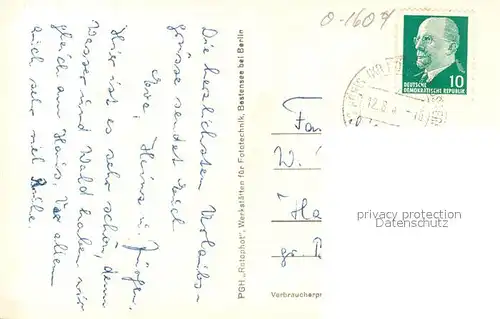 Die herzlichsten Urlaubs-
grüsse sendet Euch
Eva, Heinz u. Jürgen.
Hier ist es sehr schön, denn
Wasser und Wald haben wir
gleich am Haus. Vor allem
auch sehr viel Ruhe.
PGH „Rotophot", Werkstätten für Fototechnik, Bestensee bei Berlin
0-1607
10
DEUTSCHE
DEMOKRATISCHE REPUBLIK
12.8.
Fam
W.
Ha
privacy protection
Datenschutz
Verbraucherpr